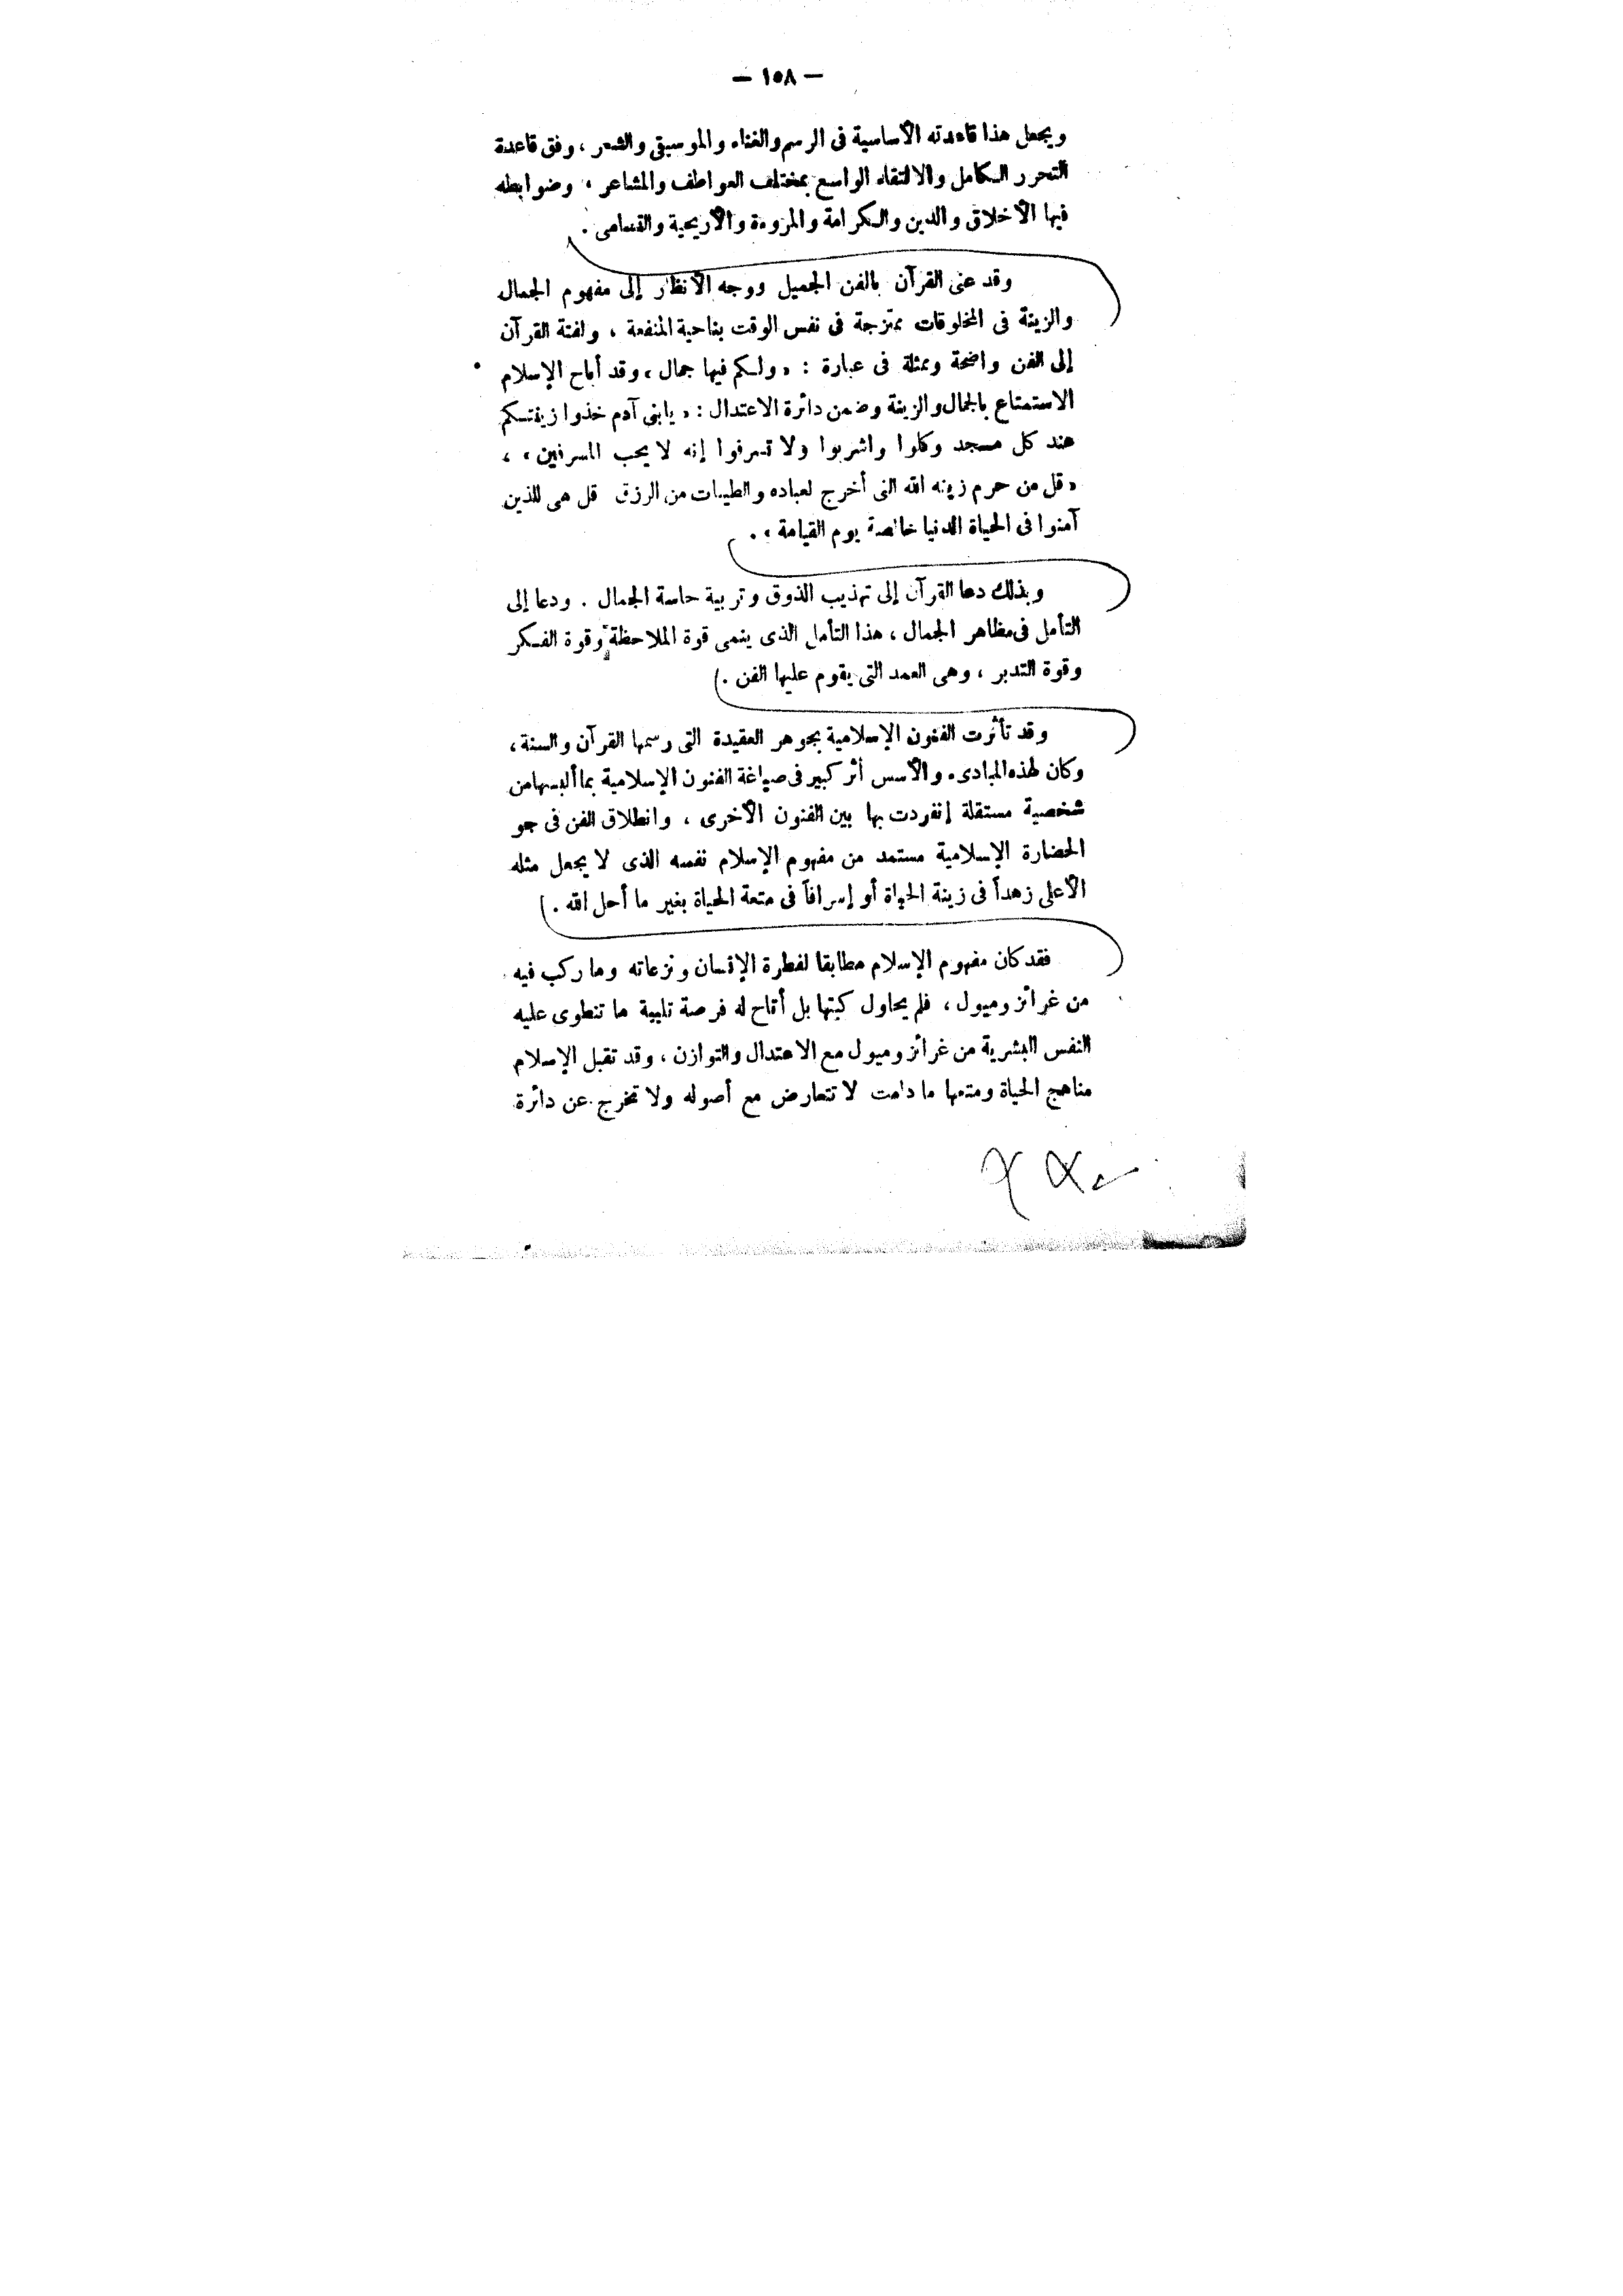 — ١٥٨ —
ويجعل هذا قاعدته الأساسية فى الرسم والغناء والموسيقى والشعر ، وفق قاعدة
التحرر الكامل والالتقاء الواسع بمختلف العواطف والمشاعر ، وضوابطه
فيها الأخلاق والدين والكرامة والمروءة والأريحية والتسامى .
وقد عنى القرآن بالفن الجميل ووجه الأنظار إلى مفهوم الجمال
والزينة فى المخلوقات ممتزجة فى نفس الوقت بناحية المنفعة ، ولفتة القرآن
إلى الفن واضحة وممثلة فى عبارة : « ولكم فيها جمال » وقد أباح الإسلام
الاستمتاع بالجمال والزينة وضمن دائرة الاعتدال : « يابنى آدم خذوا زينتكم
عند كل مسجد وكلوا واشربوا ولا تسرفوا إنه لا يحب المسرفين » ،
« قل من حرم زينه الله التى أخرج لعباده والطيبات من الرزق قل هى للذين
آمنوا فى الحياة الدنيا خالصة يوم القيامة » .
وبذلك دعا القرآن إلى تهذيب الذوق وتربية حاسة الجمال . ودعا إلى
التأمل فى مظاهر الجمال ، هذا التأمل الذى ينمى قوة الملاحظة وقوة الفكر
وقوة التدبر ، وهى العمد التى يقوم عليها الفن .
وقد تأثرت الفنون الإسلامية بجوهر العقيدة التى رسمها القرآن والسنة ،
وكان لهذه المبادىء والأسس أثر كبير فى صياغة الفنون الإسلامية بما ألبسها من
شخصية مستقلة إنفردت بها بين الفنون الأخرى ، وانطلاق الفن فى جو
الحضارة الإسلامية مستمد من مفهوم الإسلام نفسه الذى لا يجعل مثله
الأعلى زهداً فى زينة الحياة أو إسرافاً فى متعة الحياة بغير ما أحل الله .
فقد كان مفهوم الإسلام مطابقا لفطرة الإنسان ونزعاته وما ركب فيه
من غرائز وميول ، فلم يحاول كبتها بل أتاح له فرصة تلبية ما تنطوى عليه
النفس البشرية من غرائز وميول مع الاعتدال والتوازن ، وقد تقبل الإسلام
مناهج الحياة ومتعها ما دامت لا تتعارض مع أصوله ولا تخرج عن دائرة